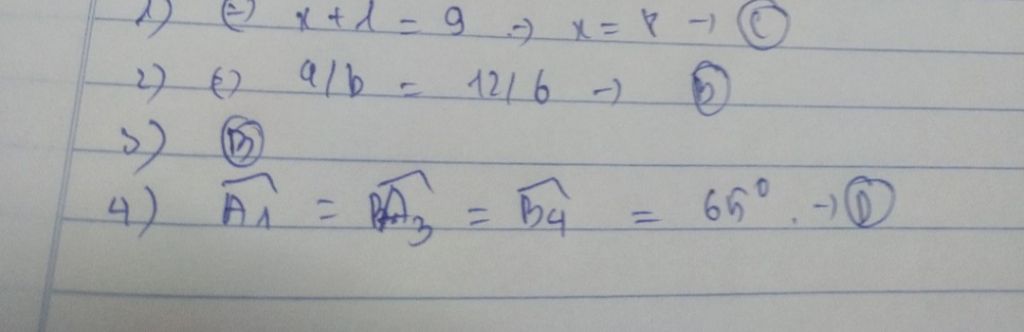 1) (=) x + 1 = 9 → x = 8 → C
2) (=) a/b = 12/6 →
3) B
4) A1 = A3 = B4 = 65°. → D